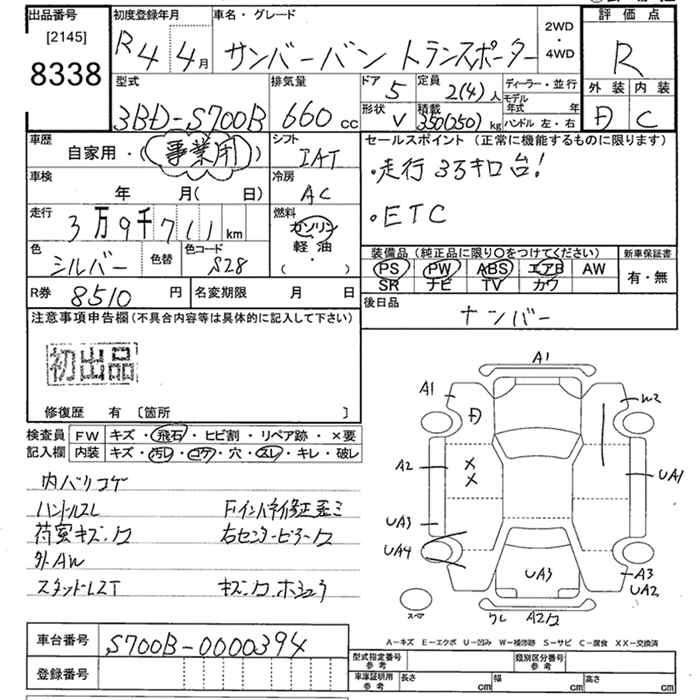 出品番号 初度登録年月 車名・グレード 評価点
[2145]
8338
R4 4月 サンバーバン トランスポーター 2WD・4WD R
型式 排気量 ドア 定員 ディーラー・並行 外装 内装
3BD-S700B 660cc 5 2(4)人 モデル年式 年 D C
形状 積載
V 350(250)kg ハンドル 左・右
車歴 シフト セールスポイント (正常に機能するものに限ります)
自家用・(事業用) IAT ・走行3万キロ台!
車検 冷房
年 月( 日) AC ・ETC
走行 燃料
3万9千711km ガソリン
軽油
( ・ )
色 色替 色コード 装備品(純正品に限り○をつけてください) 新車保証書
シルバー S28 PS PW ABS エアB AW 有・無
SR ナビ TV カワ
R券 8510円 名変期限 月 日 後日品
ナンバー
注意事項申告欄(不具合内容等は具体的に記入して下さい)
初出品
修復歴 有〔箇所 〕
検査員 FW キズ・飛石・ヒビ割・リペア跡・×要
記入欄 内装 キズ・汚レ・コゲ・穴・スレ・キレ・破レ
内バリコゲ
ハンドルスレ Fインパネ修正歪ミ
荷室キズ.凹 右センターピラー凹
外AW
スタッドレスT キズ.凹.ホシュウ
A1
A1 D W2
A2 X X UA1
UA3
UA4 UA3 A3
UA2
スペア ワレ A2凹
A-キズ E-エクボ U-凹み W-補修跡 S-サビ C-腐食 XX-交換済
車台番号 S700B-0000394
登録番号
型式指定番号 参考 類別区分番号 参考
車庫証明用 参考 長さ cm 幅 cm 高さ cm